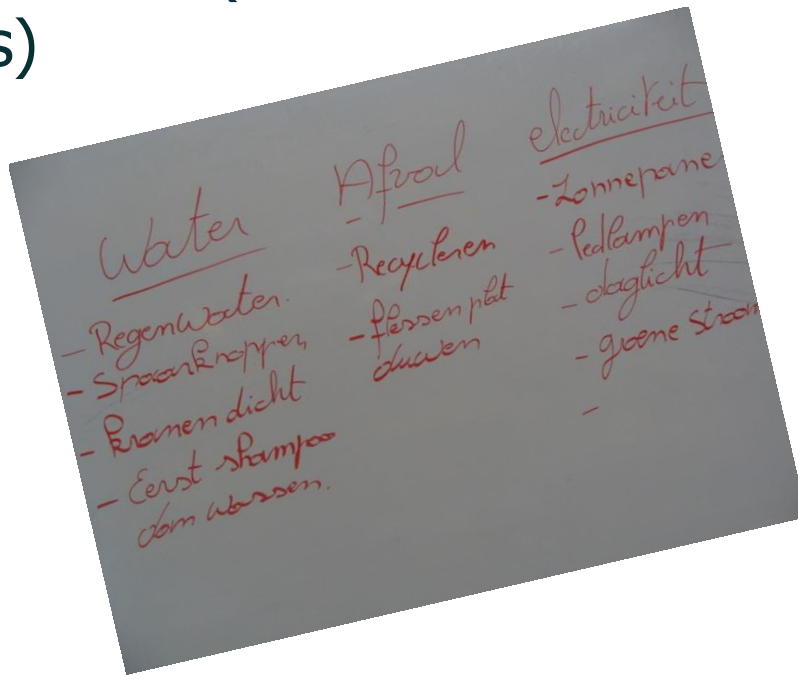 s)
Water
- Regenwater.
- Spaarknoppen
- kranen dicht
- Eerst shampoo
dan wassen.
Afval
- Recycleren
- flessen plat
duwen
electriciteit
- Zonnepane
- ledlampen
- daglicht
- groene stroom
-